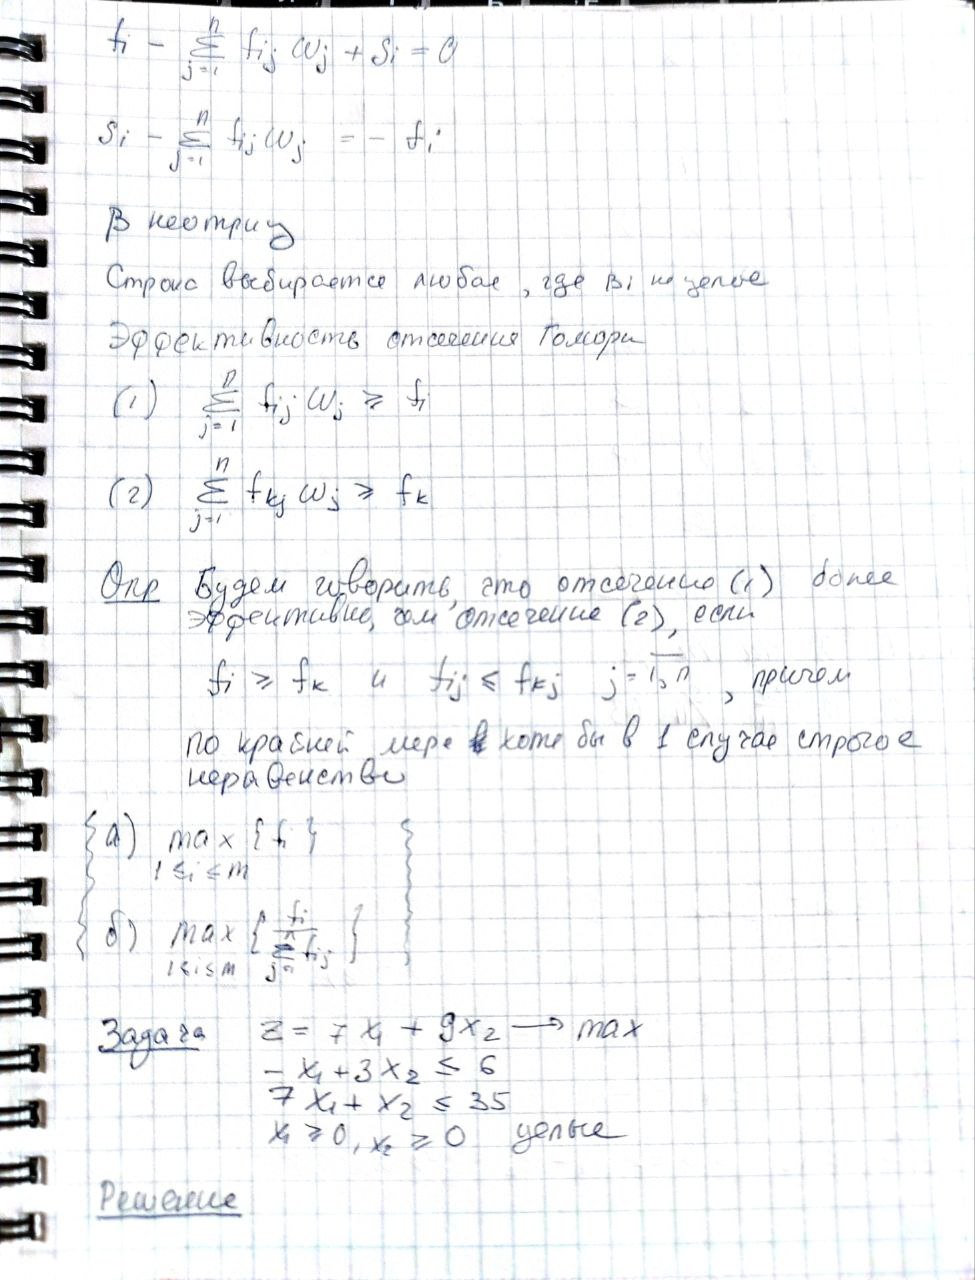 fi - Σ_{j=1}^{n} fij ωj + Si = 0
Si - Σ_{j=1}^{n} fij ωj = - fi
В неотриц
Строка выбирается любая, где Bi не целое
Эффективность отсечения Гомори
(1) Σ_{j=1}^{n} fij ωj ≥ fi
(2) Σ_{j=1}^{n} fkj ωj ≥ fk
Опр Будем говорить, что отсечение (1) более
эффективно, чем отсечение (2), если
fi ≥ fk и fij ≤ fkj j = 1, n , причем
по крайней мере хотя бы в 1 случае строгое
неравенство
а) max {fi}
1≤i≤m
б) max { fi / Σ_{j=1}^{n} fij }
1≤i≤m
Задача z = 7x1 + 9x2 → max
- x1 + 3x2 ≤ 6
7x1 + x2 ≤ 35
x1 ≥ 0, x2 ≥ 0 целые
Решение